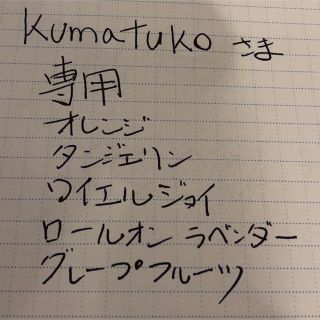 kumatuko さま
専用
オレンジ
タンジェリン
ワイエルジョイ
ロールオン ラベンダー
グレープフルーツ